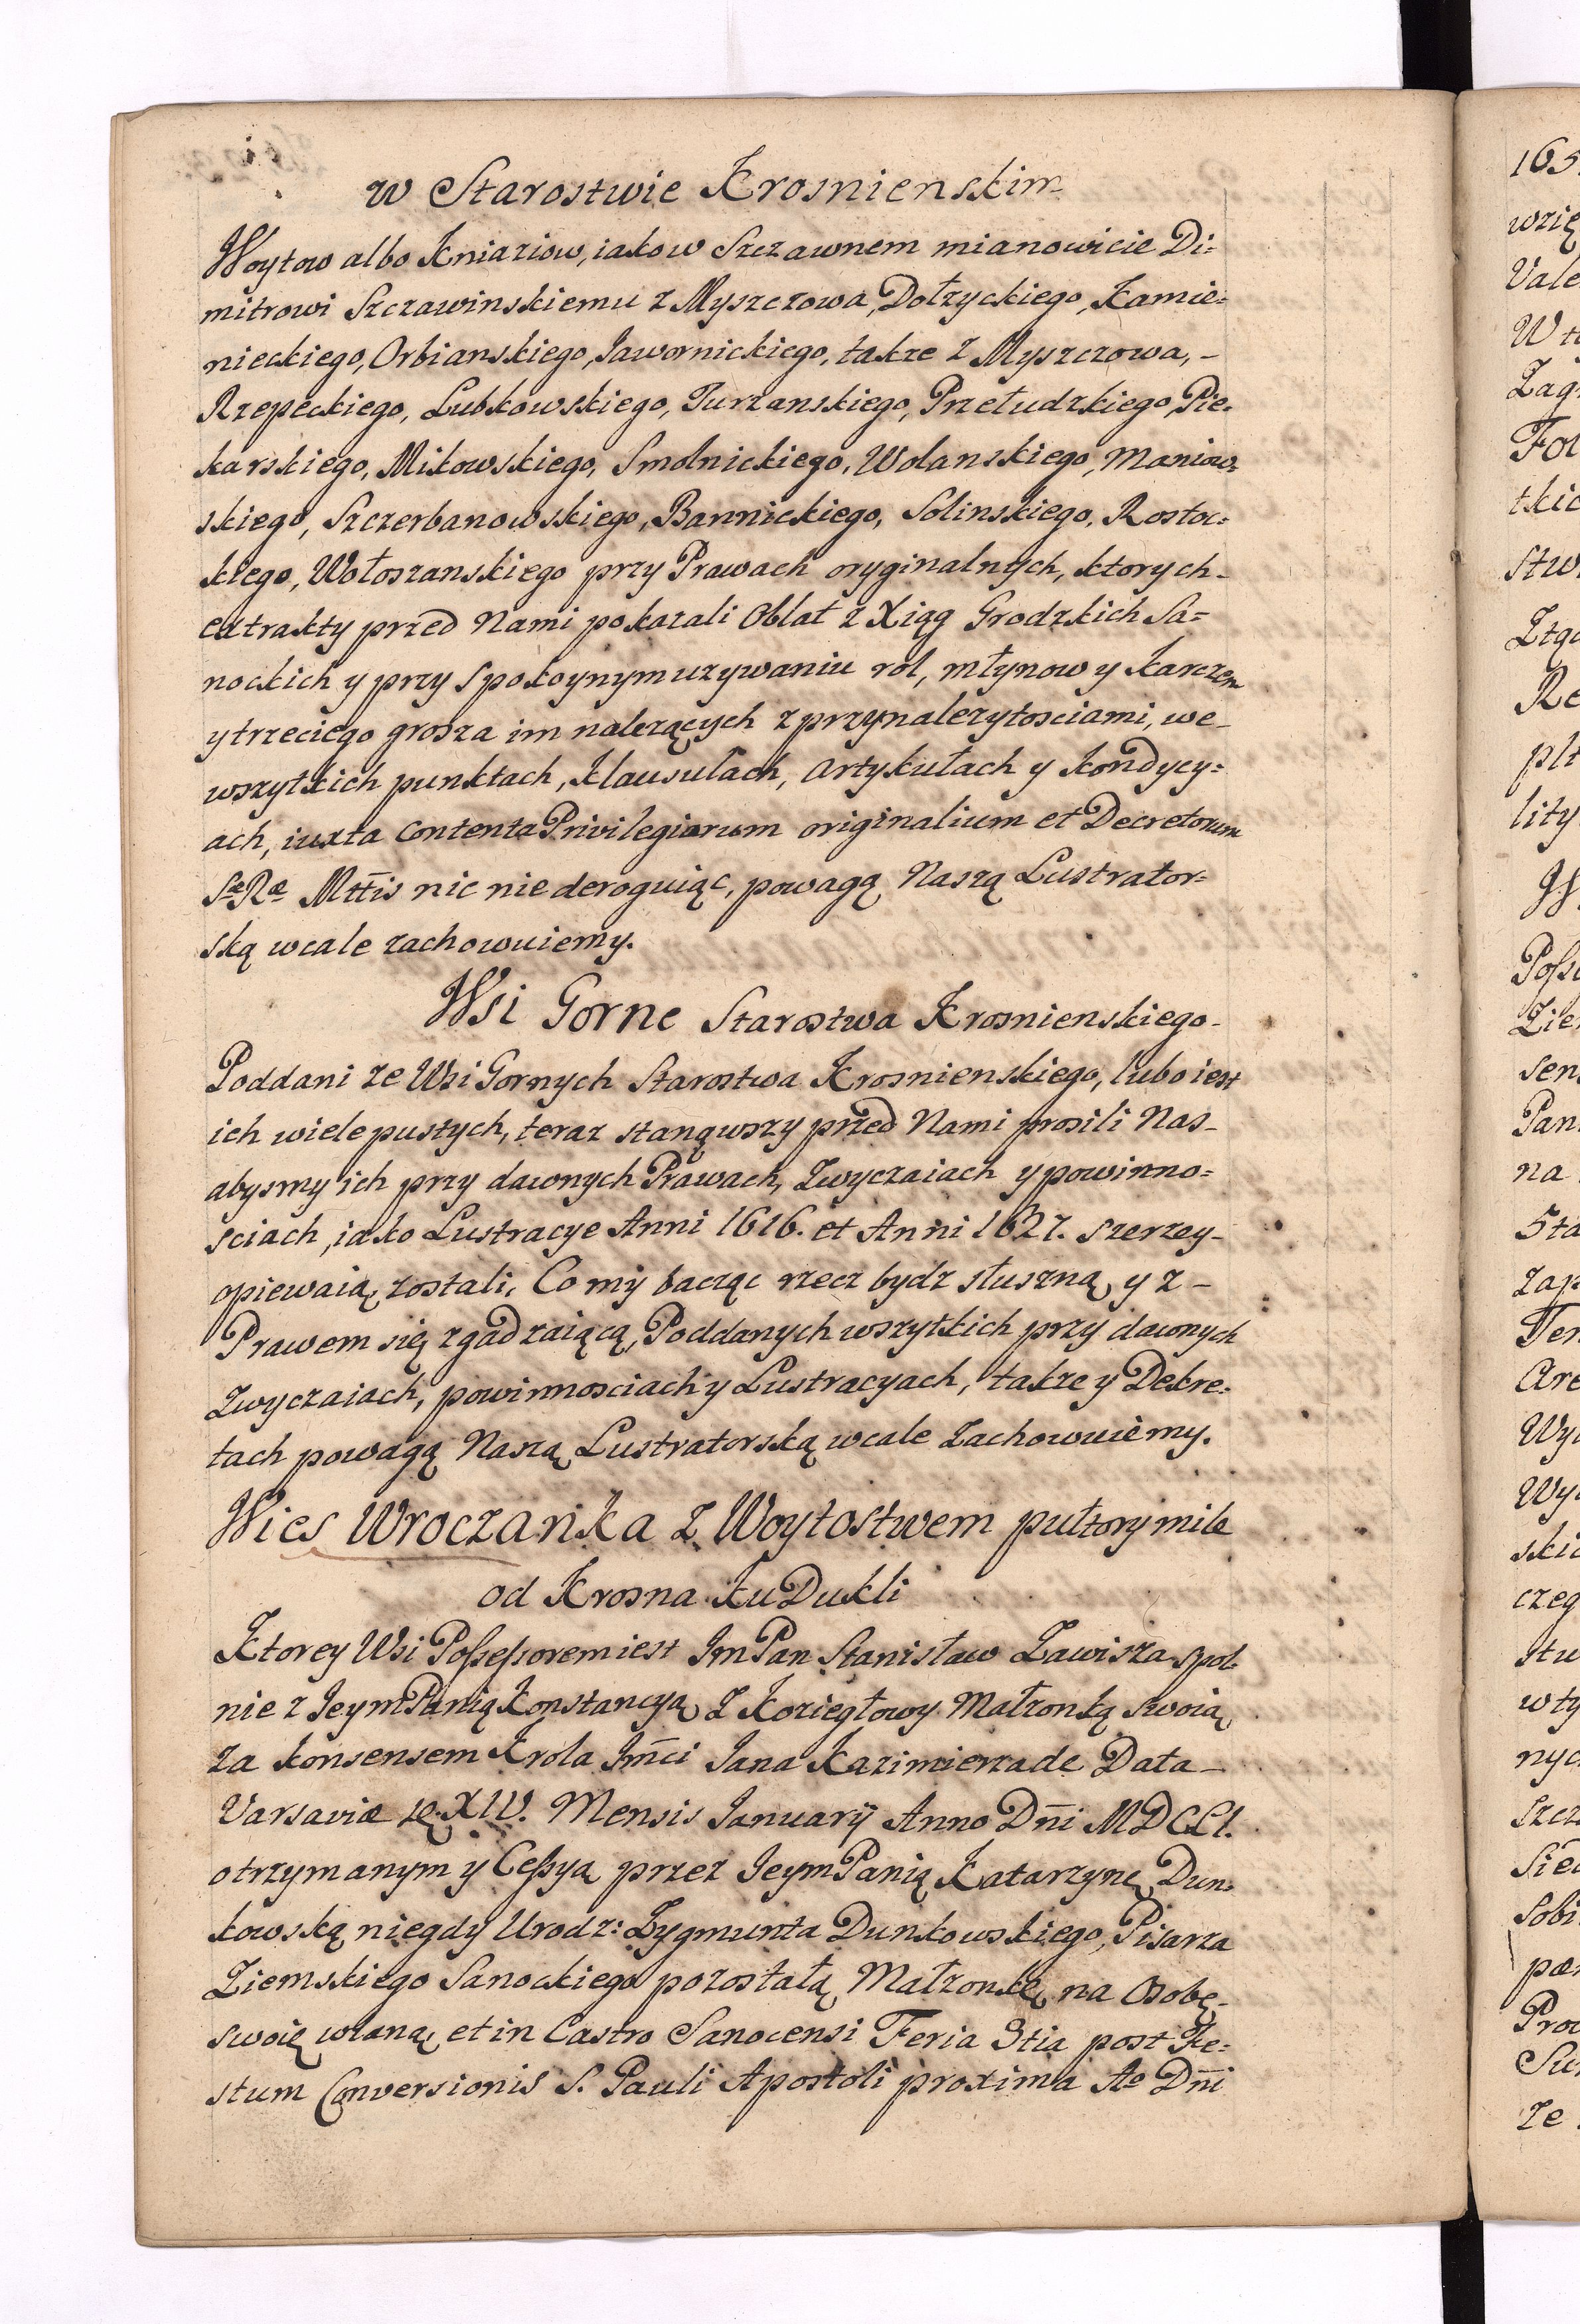 w Starostwie Krosnienskim
Woytow albo Kniaziow, iako w Szczawnem mianowicie Di=
mitrowi Szczawinskiemu z Myszczowa, Dołzyckiego, Kamie=
nieckiego, Orbianskiego, Jawornickiego, takze z Myszczowa,-
Rzepeckiego, Lubkowskiego, Turzanskiego, Przełudzkiego, Pie=
karskiego, Mikowskiego, Smolnickiego, Wolanskiego, Maniow=
skiego, Szczerbanowskiego, Bannickiego, Solinskiego, Rostoc=
kiego, Wołoszanskiego przy Prawach oryginalnych, ktorych-
extrakty przed Nami pokazali Oblat z Xiąg Grodzkich Sa=
nockich y przy spokoynym uzywaniu rol, młynow y karczem
y trzeciego grosza im nalezących z przynalezytosciami, we-
wszytkich punktach, klausułach, artykułach y kondycy=
ach, iuxta contenta Privilegiorum originalium et Decretorum
Sæ Ræ Mttis nic nie deroguiąc, powagą Naszą Lustrator=
ską wcale zachowuiemy.
Wsi Gorne Starostwa Krosnienskiego-
Poddani ze Wsi Gornych Starostwa Krosnienskiego, lubo iest
ich wiele pustych, teraz stanąwszy przed Nami prosili Nas-
abysmy ich przy dawnych Prawach, Zwyczaiach y powinno=
sciach, iako Lustracye Anni 1616. et Anni 1627. szerzey-
opiewaią, zostali, Co my bacząc rzecz bydz słuszną y z-
Prawem się zgadzaiącą, Poddanych wszytkich przy dawnych
Zwyczaiach, powinnosciach y Lustracyach, takze y Dekre=
tach powagą Naszą Lustratorską wcale Zachowuiemy.
Wies Wroczanka z Woytostwem pułtory mile
od Krosna ku Dukli
Ktorey Wsi Possessorem iest Jm Pan Stanisław Zawisza spol=
nie z Jeym Panią Konstancyą z Koziegłowy Małzonką swoią
za konsensem Krola Jmci Jana Kazimierza de Data-
Varsaviæ XIV. Mensis Januarij Anno Dni MDCLI.
otrzymanym y Cessyą przez Jeym Panią Katarzynę Dun=
kowską niegdy Urodz: Zygmunta Dunkowskiego, Pisarza
Ziemskiego Sanockiego pozostałą Małzonkę na Osobę-
swoię wlaną et in Castro Sanocensi Feria 3tia post Fe=
stum Conversionis S. Pauli Apostoli proxima Ao Dni